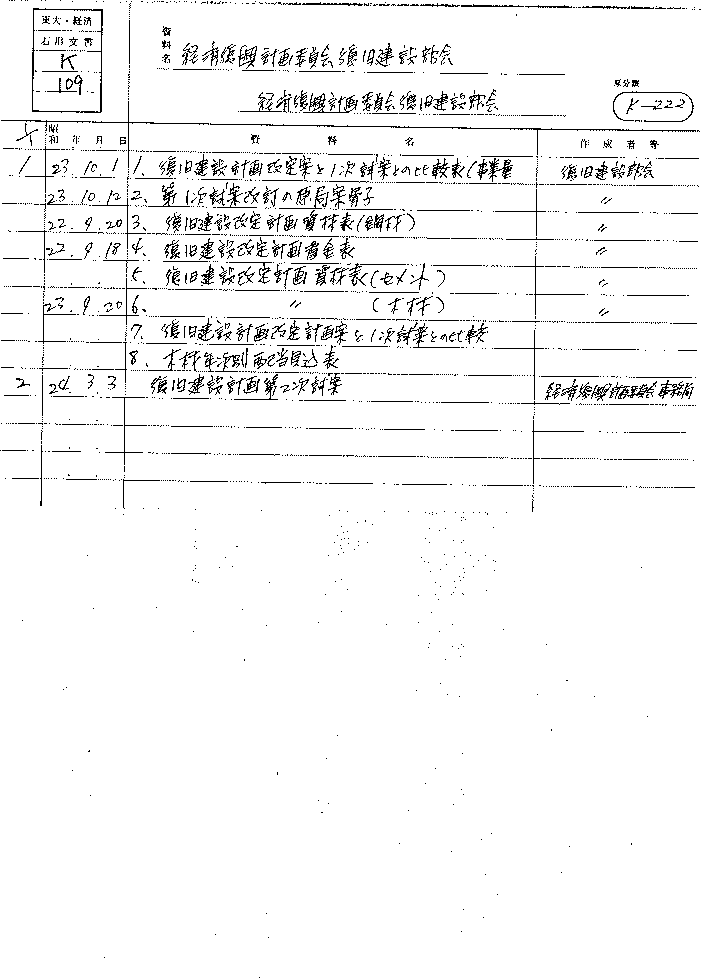 東大・経済
石川文書
K
109
資料名
経済復興計画委員会復旧建設部会
経済復興計画委員会復旧建設部会
原分類
K-222
昭和 年 月 日 資料名 作成者等
1 23.10.1 1、復旧建設計画改定案と1次試案との比較表(事業量 復旧建設部会
23.10.12 2、第1次試案改訂の原局案骨子 〃
22.9.20 3、復旧建設改定計画資材表(鋼材) 〃
22.9.18 4、復旧建設改定計画資金表 〃
5、復旧建設改定計画資材表(セメント) 〃
23.9.20 6、 〃 (木材) 〃
7、復旧建設計画改定計画案と1次試案との比較
8、木材年次別配当見込表
2 24.3.3 復旧建設計画第2次試案 経済復興計画委員会事務局